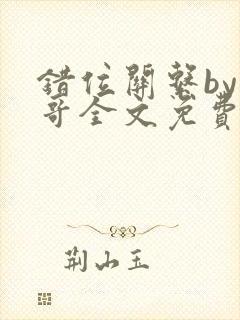 錯位關繫by
哥全文免費
荊山玉